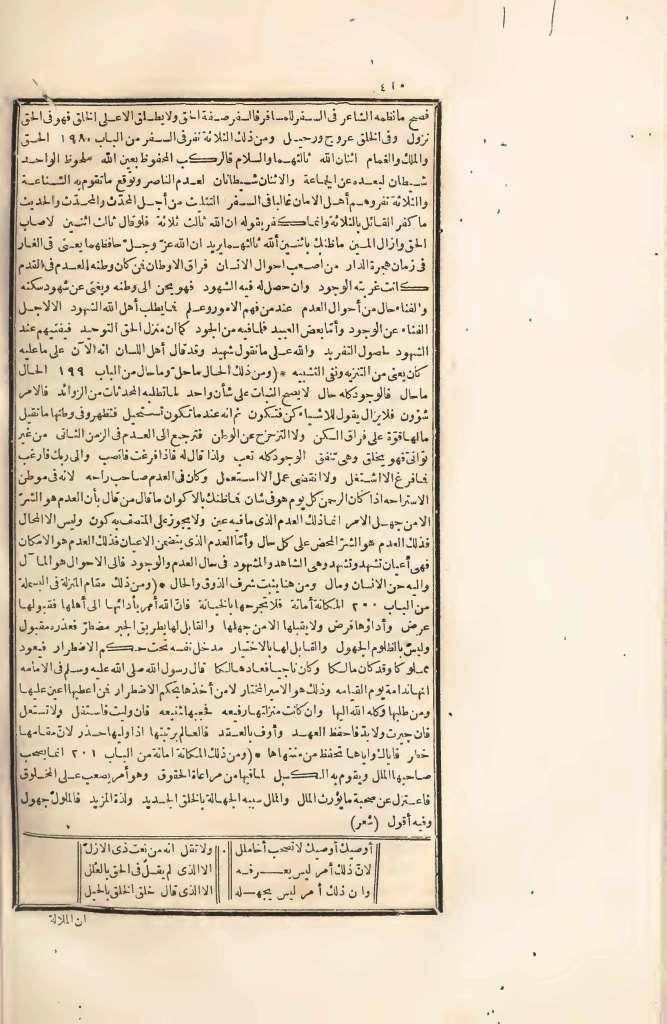 ٤١٥
فصح ما نظمه الشاعر فى السفر للمسافر فالسفر صفة الحق ولا يطلق الا على الخلق فهو فى الحق
نزول وفى الخلق عروج ورحيل ومن ذلك الثلاثة نفر فى السفر من الباب ١٩٨ الحق
والملك والغمام اثنان الله ثالثهما والسلام فالركب المحفوظ بعين الله ملحوظ الواحد
شيطان لبعده عن الجماعة والاثنان شيطانان لعدم الناصر وتوقع ما تقوم به الشناعة
والثلاثة نفر وهم أهل الامان غالبا فى السفر التثليث من أجل المحدّث والمحدّث والحديث
ما كفر القائل بالثلاثة وانما كفر بقوله ان الله ثالث ثلاثة فلو قال ثالث اثنين لاصاب
الحق وازال المين ما ظنك باثنين ألله ثالثهما يريد ان الله عزّ وجلّ حافظهما يعنى فى الغار
فى زمان هجرة الدار من اصعب احوال الانسان فراق الاوطان فمن كان وطنه العدم فى القدم
كانت غربته الوجود وان حصل له فيه الشهود فهو يحن الى وطنه ويفنى عن شهود سكنه
والفناء حال من أحوال العدم عند من فهم الامور وعلم فما يطلب أهل الله الشهود الا لاجل
الفناء عن الوجود وأمّا بعض العبيد فلما فيه من الجود كما ان منزل الحق التوحيد فيفنيهم عند
الشهود لحصول التفريد والله على ما نقول شهيد وقد قال أهل اللسان انه الآن على ما عليه
كان يعنى من التنزيه ونفى التشبيه * (ومن ذلك الحال ما حلّ وما حال من الباب ١٩٩ الحال
ما حال فالوجود كله حال لا يصح الثبات على شأن واحد لما تطلبه المحدثات من الزوائد فالامر
شؤون فلا يزال يقول للاشياء كن فتكون ثم انه عند ما تكون تستحيل فتظهر وفى وطنها ما تقيل
مالها قوّة على فراق السكن ولا التزحزح عن الوطن فترجع الى العدم فى الزمن الثانى من غير
توانى فهو يخلق وهى تنفق الوجود كله تعب ولذا قال له فاذا فرغت فانصب والى ربك فارغب
فما فرغ الا اشتغل ولا انقضى عمل الا استعمل وكان فى العدم صاحب راحه لانه فى موطن
الاستراحه اذا كان الرحمن كل يوم هو فى شان فما ظنك بالاكوان ما قال من قال بأن العدم هو الشرّ
الا من جهل الامر انما ذلك العدم الذى ما فيه عين ولا يجوز على المتصف به كون وليس الا المحال
فذلك العدم هو الشرّ المحض على كل حال وأمّا العدم الذى يتضمن الاعيان فذلك العدم هو الامكان
فهى أعيان تشهد وتشهد وهى الشاهد والمشهود فى حال العدم والوجود فالى الاحوال هو المآل
واليه حن الانسان ومال ومن هنا يثبت شرف الذوق والحال * (ومن ذلك مقام المنزلة فى البسملة
من الباب ٢٠٠ المكانة أمانة فلا تجرحها بالخيانة فانّ الله أمر بأدائها الى أهلها فقبولها
عرض وأداؤها فرض ولا يقبلها الا من جهلها والقابل لها بطريق الجبر مضطرّ فعذره مقبول
وليس بالظلوم الجهول والقابل لها بالاختيار مدخل نفسه تحت حكم الاضطرار فيعود
مملوكا وقد كان مالكا وكان ناجيا فعاد هالكا قال رسول الله صلى الله عليه وسلم فى الامامه
انها ندامة يوم القيامه وذلك هو الامير المختار لا من أخذها بحكم الاضطرار فمن اعطيها اعين عليها
ومن طلبها وكله الله اليها وان كانت منزلتها رفيعه فحجبها منيعه فان وليت فاستقل ولا تستعل
فان جبرت ولا بدّ فاحفظ العهد وأوف بالعقد فالعالم برتبتها اذا وليها حذر لانّ مقامها
خطر فاياك واياها تتحفظ من منتهاها * (ومن ذلك المكانة امانة من الباب ٢٠١ انما يصحب
صاحبها الملل ويقوم به الكسل لما فيها من مراعاة الحقوق وهو أمر يصعب على المخلوق
فاعتزل عن صحبة ما يورث الملل والملل سببه الجهالة بالخلق الجديد ولذة المزيد فالملول جهول
وفيه أقول (شعر)
أوصيك أوصيك لا تصحب أخا ملل ولا تقل انه من نعت ذى الازل
لانّ ذلك أمر ليس يعرفه الا الذى لم يقل فى الحق بالعلل
وان ذلك أمر ليس يجهله الا الذى قال خلق الخلق بالحيل
ان الملالة